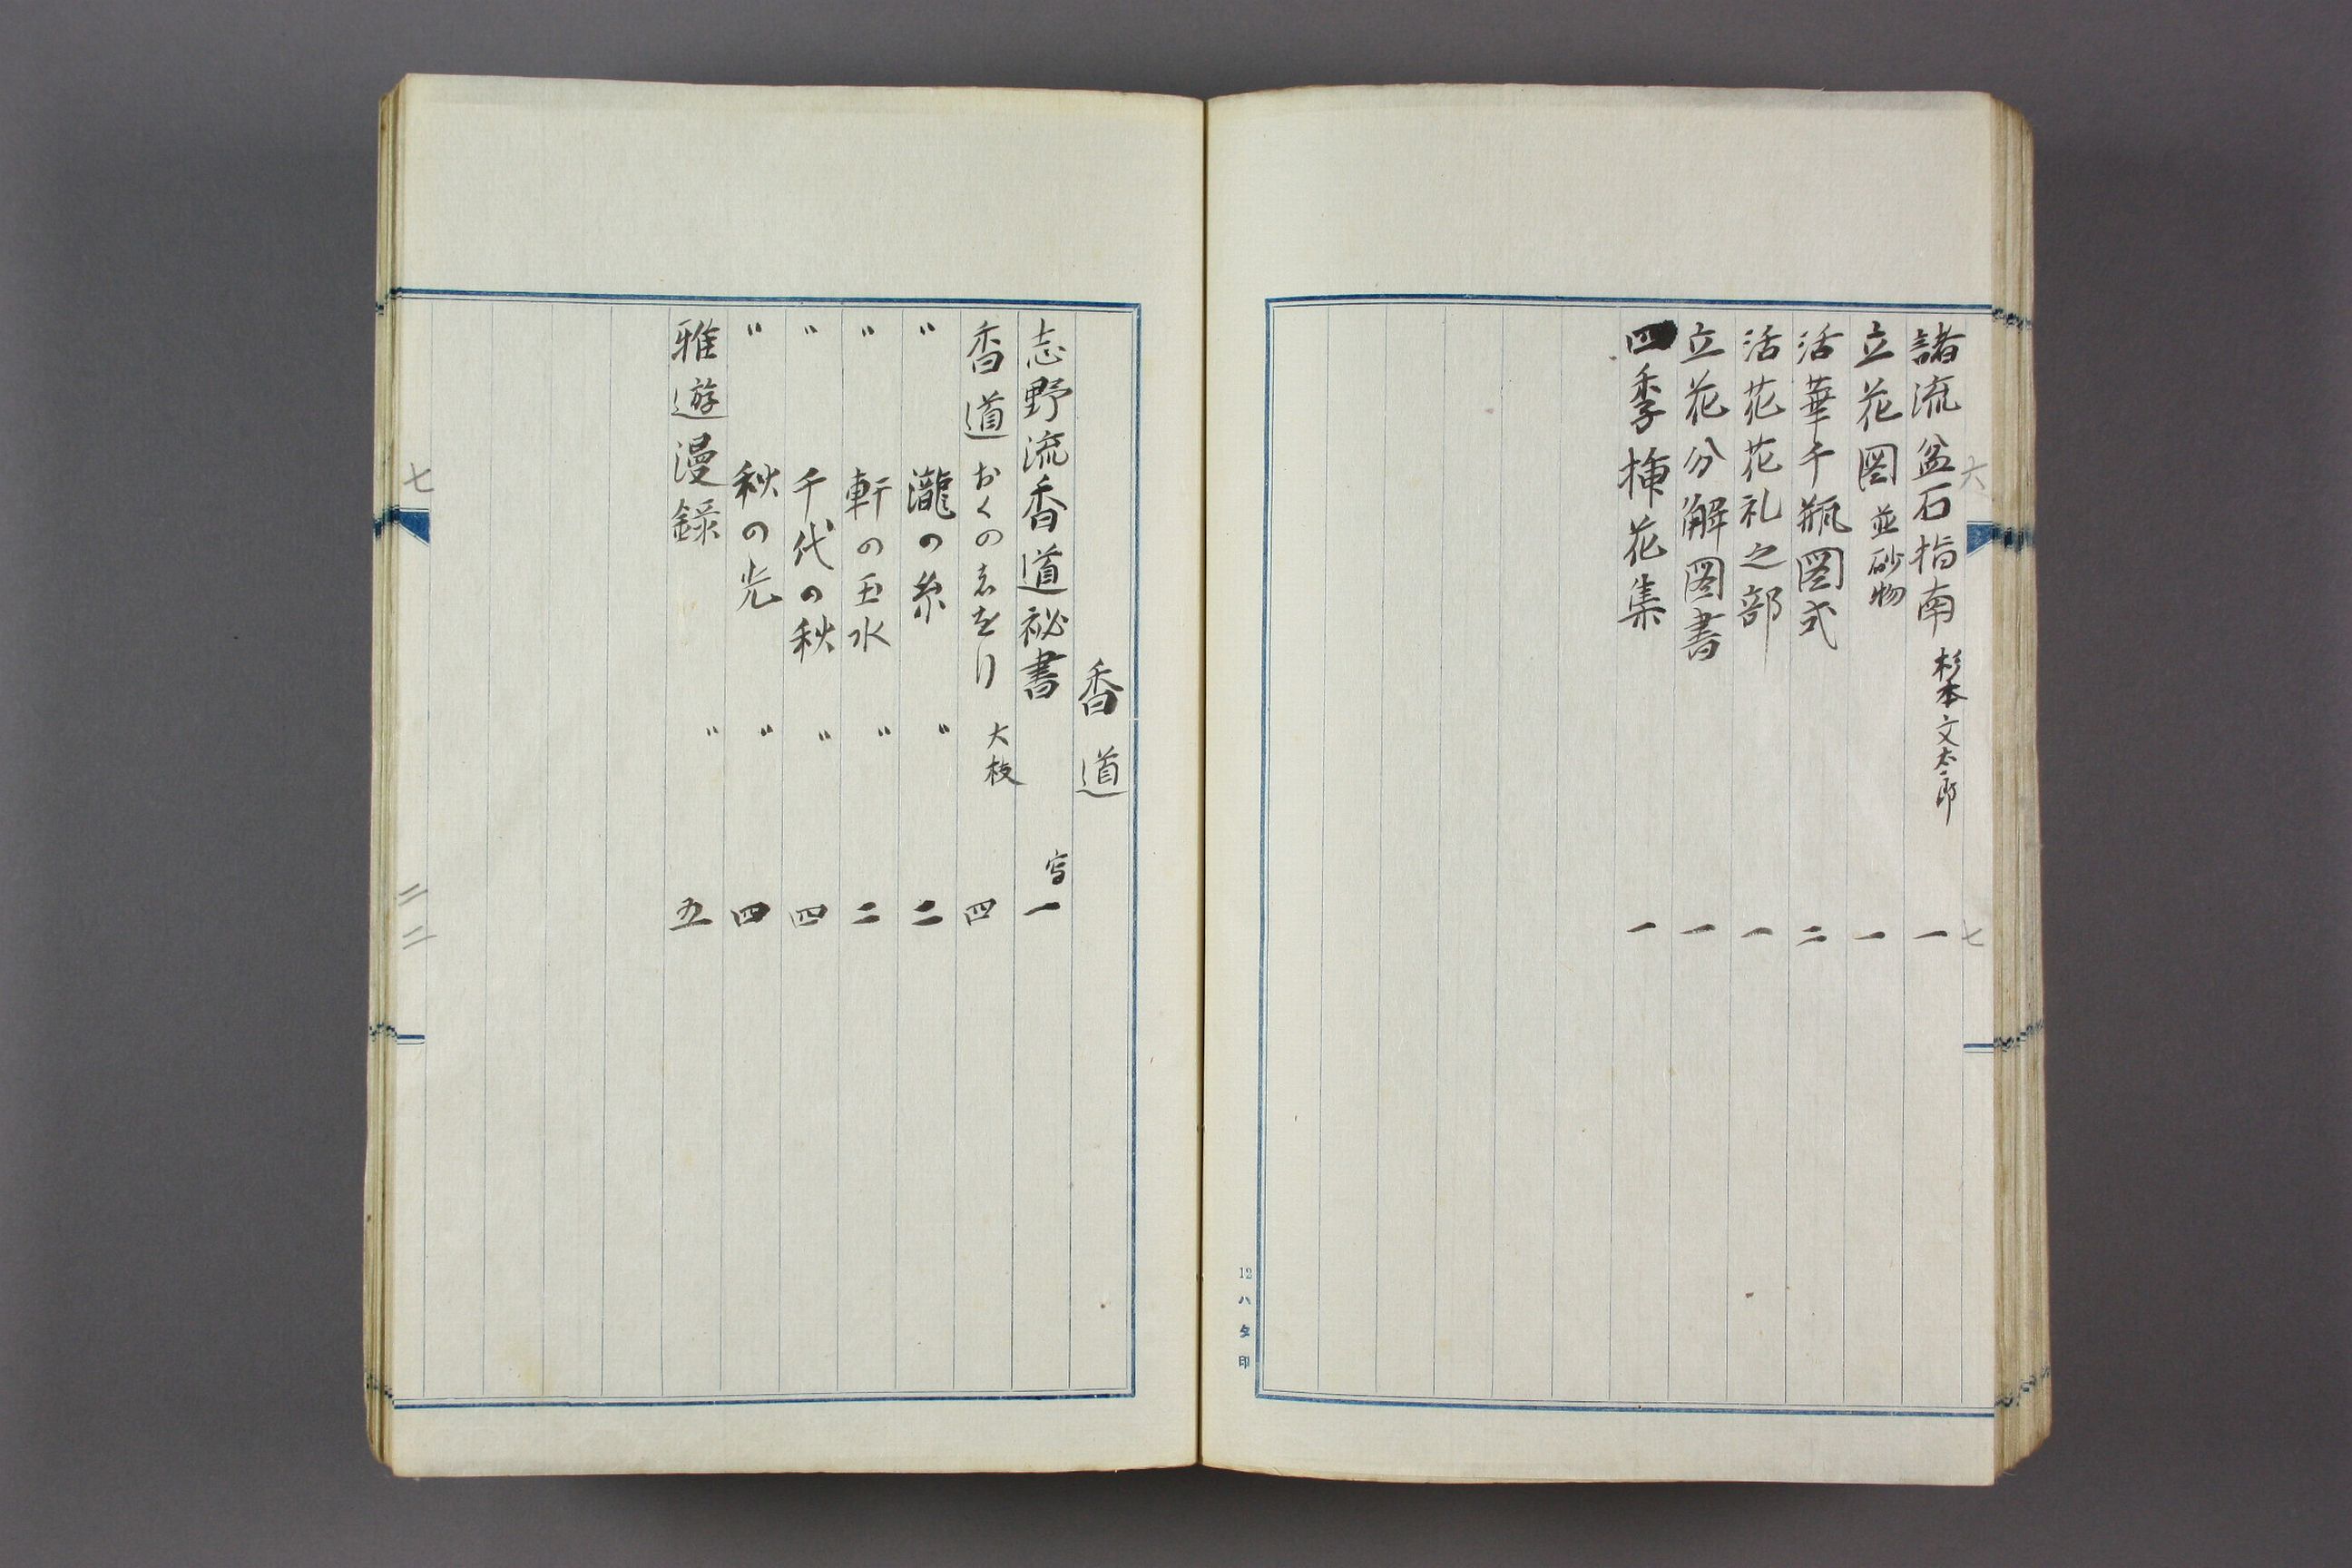 六　七
諸流盆石指南　杉本文太郎　一
立花図　並砂物　一
活華千瓶図式　二
活花花礼之部　一
立花分解図書　一
四季挿花集　一
12 ハタ印
香道
志野流香道祕書　写一
香道　おくの志をり　大枝　四
〃　瀧の糸　〃　二
〃　軒の玉水　〃　二
〃　千代の秋　〃　四
〃　秋の光　〃　四
雅遊漫録　〃　五
七　二二